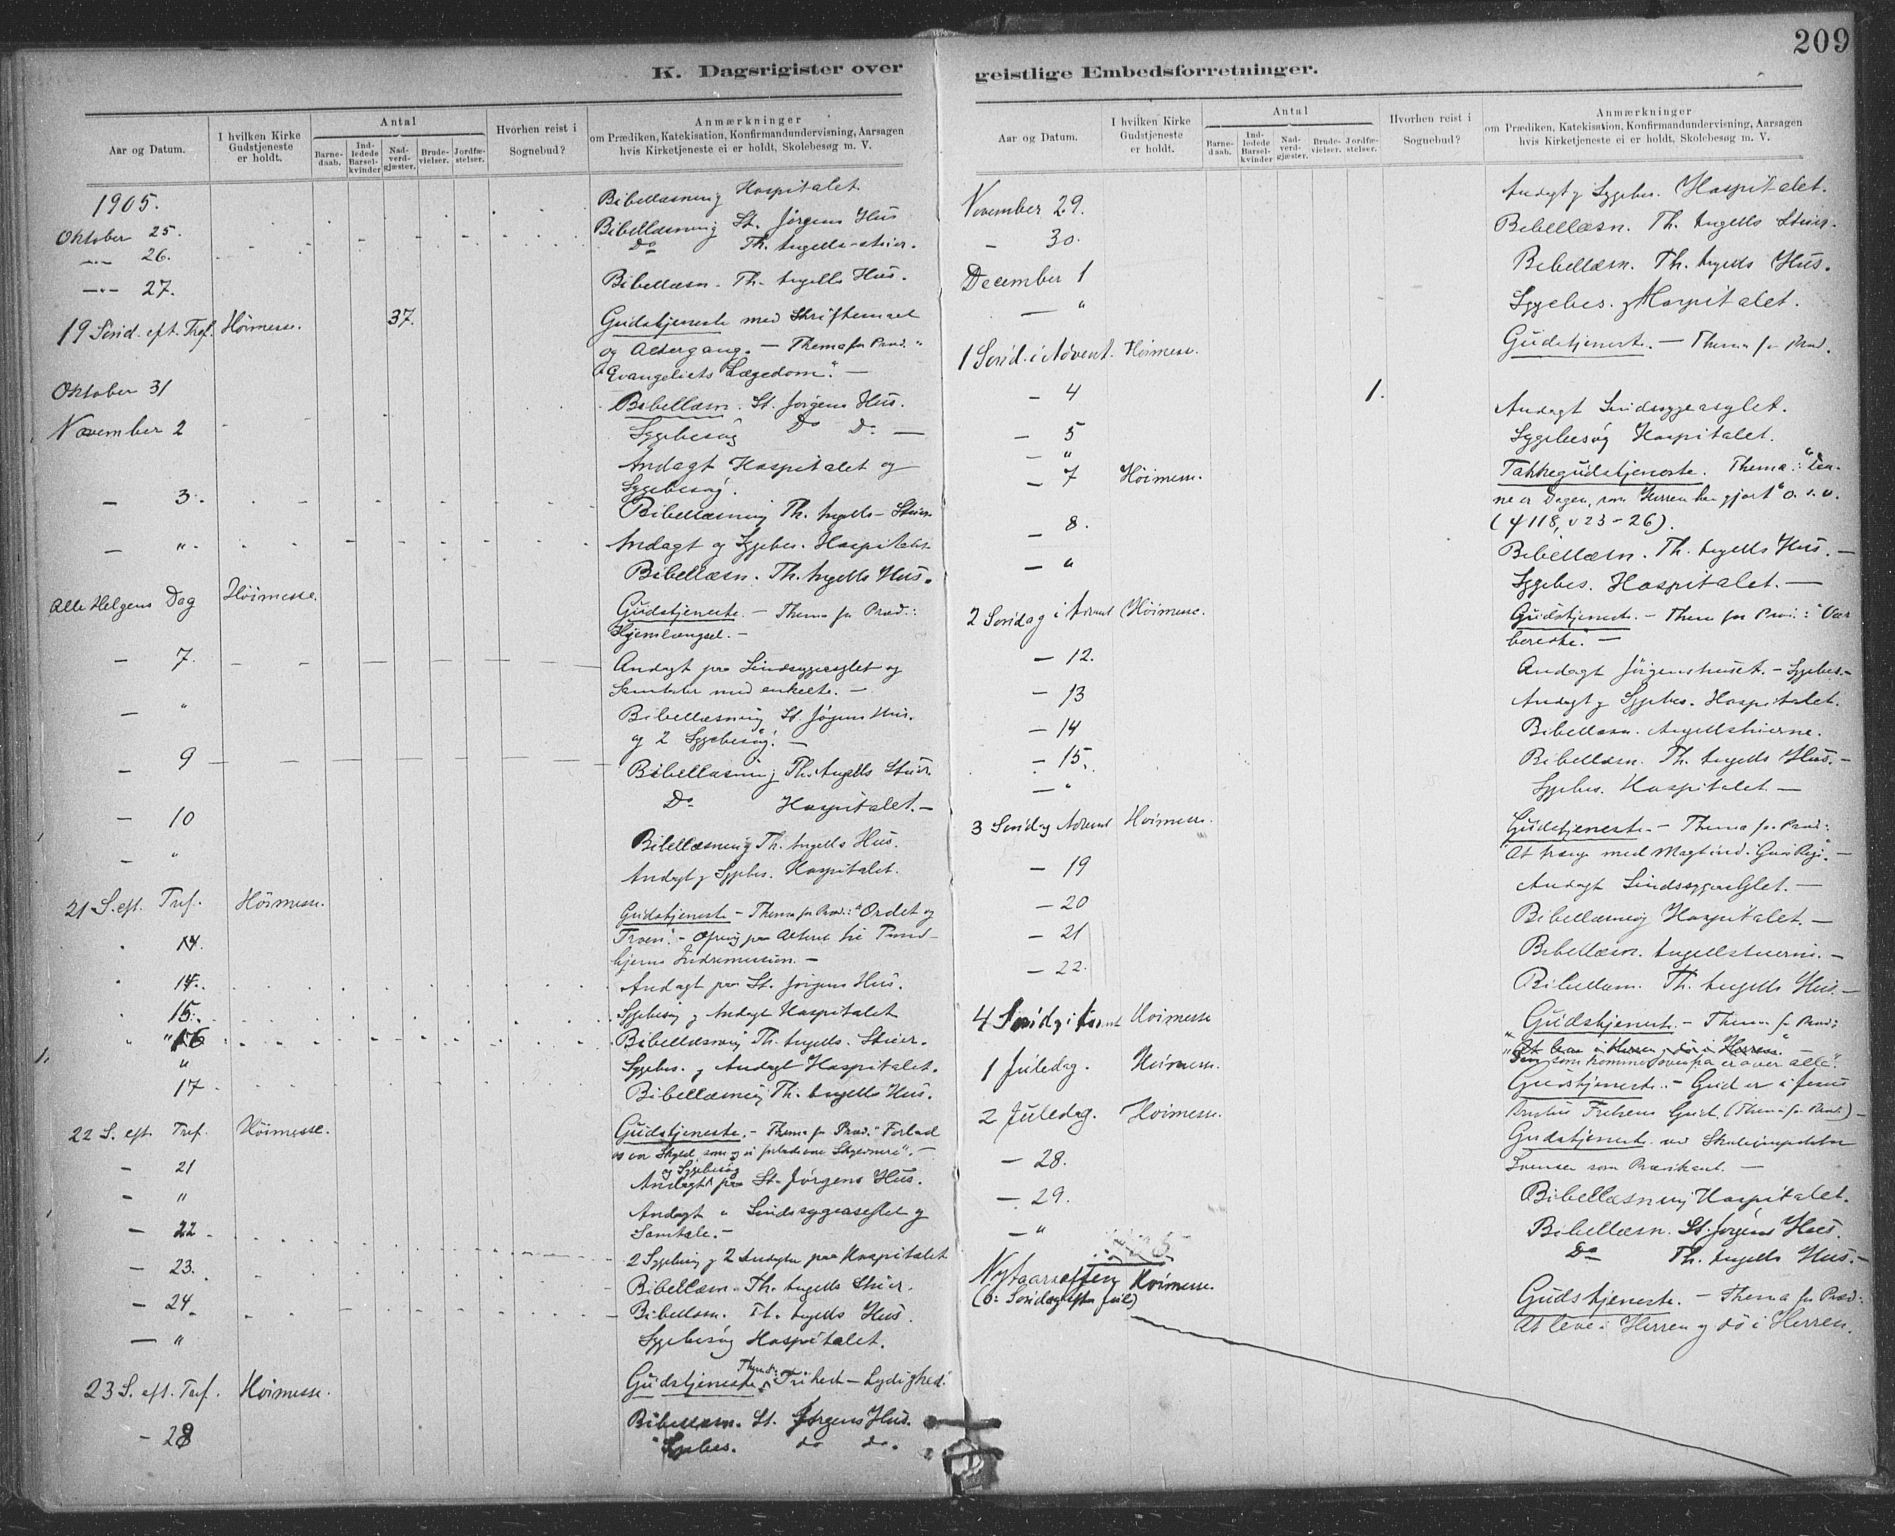 209
K. Dagsrigister over
geistlige Embedsforretninger.
Aar og Datum.
I hvilken Kirke Gudstjeneste er holdt.
Antal
Barne-daab.
Ind-ledede Barsel-kvinder
Nad-verd-gjæster.
Brude-vielser.
Jordfæ-stelser.
Hvorhen reist i Sognebud?
Anmærkninger
om Prædiken, Katekisation, Konfirmandundervisning, Aarsagen
hvis Kirketjeneste ei er holdt, Skolebesøg m. V.
1905.
Oktober 25. Bibellæsning Hospitalet.
Bibellæsning St. Jørgens Hus
26. Do Th. Angells-stuer.
27. Bibellæsn. Th. Angells Hus.
19 Sønd. eft. Tref. Høimesse. 37. Gudstjeneste med Skriftemaal
og Altergang. — Thema for Præd.
"Evangeliets Lægedom". —
Oktober 31 Bibellæsn. St. Jørgens Hus.
November 2 Sygebesøg Do Do —
Andagt Hospitalet og
Sygebesøg.
— 3. Bibellæsning Th. Angells-Stuer
— " Andagt og Sygebes. Hospitalet
Bibellæsn. Th. Angells Hus.
Alle Helgens Dag Høimesse. Gudstjeneste. — Thema for Præd.:
Hjemlængsel. —
— 7. Andagt paa Sindssygeasylet og
Samtaler med enkelte. —
— " Bibellæsning St. Jørgens Hus.
og 2 Sygebesøg. —
— 9 Bibellæsning Th. Angells Stuer
Do Hospitalet. —
— 10 Bibellæsning Th. Angells Hus.
— " Andagt og Sygebes. Hospitalet.
21 S. eft. Tref. Høimesse. Gudstjeneste — Thema for Præd.: "Ordet og
Troen". —
hjems Indremission. —
14. Andagt paa St. Jørgens Hus.
15. Sygebesøg og Andagt Hospitalet
16 Bibellæsning Th. Angells Stuer.
" Sygebes. og Andagt Hospitalet.
17 Bibellæsning Th. Angells Hus.
22 S. eft. Tref. Høimesse. Gudstjeneste. — Thema for Præd. "Forlad
os vor Skyld, som og vi forlade vore Skyldnere". —
og Sygebesøg
— 21 Andagt paa St. Jørgens Hus.
— " Andagt " Sindssygeasylet og
Samtale. —
— 22 2 Sygebesøg og 2 Andagter paa Hospitalet
— 23. Bibellæsn. Th. Angells Stuer.
— 24. Bibellæsn. Th. Angells Hus.
— " Sygebesøg Hospitalet.
23 S. eft. Tref. Høimesse. Gudstjeneste Thema: Frihed — Lydighed.
— 28 Bibellæsn. St. Jørgens Hus.
Sygebes. do do.
November 29. Andagt og Sygebes. Hospitalet.
— 30. Bibellæsn. Th. Angells Stuer.
December 1 Bibellæsn. Th. Angells Hus.
— " Sygebes. Hospitalet.
1 Sønd. i Advent. Høimesse. Gudstjeneste. — Thema for Præd.
— 4 1. Andagt Sindssygeasylet.
— 5 Sygebesøg Hospitalet.
— "
— 7 Høimesse. Takkegudstjeneste. Thema: "Den-
ne er Dagen, som Herren har gjort" o. s. v.
(ψ 118, v 23-26).
— 8. Bibellæsn. Th. Angells Hus. —
— " Sygebes. Hospitalet. —
2 Søndag i Advent Høimesse. Gudstjeneste. — Thema for Præd.: "Vær
beredte". —
— 12. Andagt Jørgenshuset. — Sygebes. —
— 13 Andagt og Sygebes. Hospitalet.
— 14 Bibellæsn. Angellstuerne.
— 15. Bibellæsn. Th. Angells Hus. —
— " Sygebes. Hospitalet —
3 Søndag Advent Høimesse. Gudstjeneste. — Thema for Præd.:
"At trænge med Magt ind i Guds Rige". —
— 19 Andagt Sindssygeasylet. —
— 20 Bibellæsning Hospitalet. —
— 21 Bibellæsn. Angellstuerne. —
— 22. Bibellæsn. Th. Angells Hus. —
4 Søndag i Advent Høimesse Gudstjeneste — Thema for Præd:
"At leve i Herren, dø i Herren"
som kommer ovenfra er over alle".
1 Juledag. Høimesse. Gudstjeneste. — Gud er i Jesus
Kristus Frelsens Gud. (Thema for Præd.) —
2 Juledag. Høimesse. Gudstjeneste ved
Svensen som Prædikant. —
— 28. Bibellæsning Hospitalet.
— 29. Bibellæsn. St. Jørgens Hus.
— " Do Th. Angells Hus. —
Nytaarsaften Høimesse. Gudstjeneste. — Thema for Præd.:
(o: Søndag efter Jul) At leve i Herren og dø i Herren.